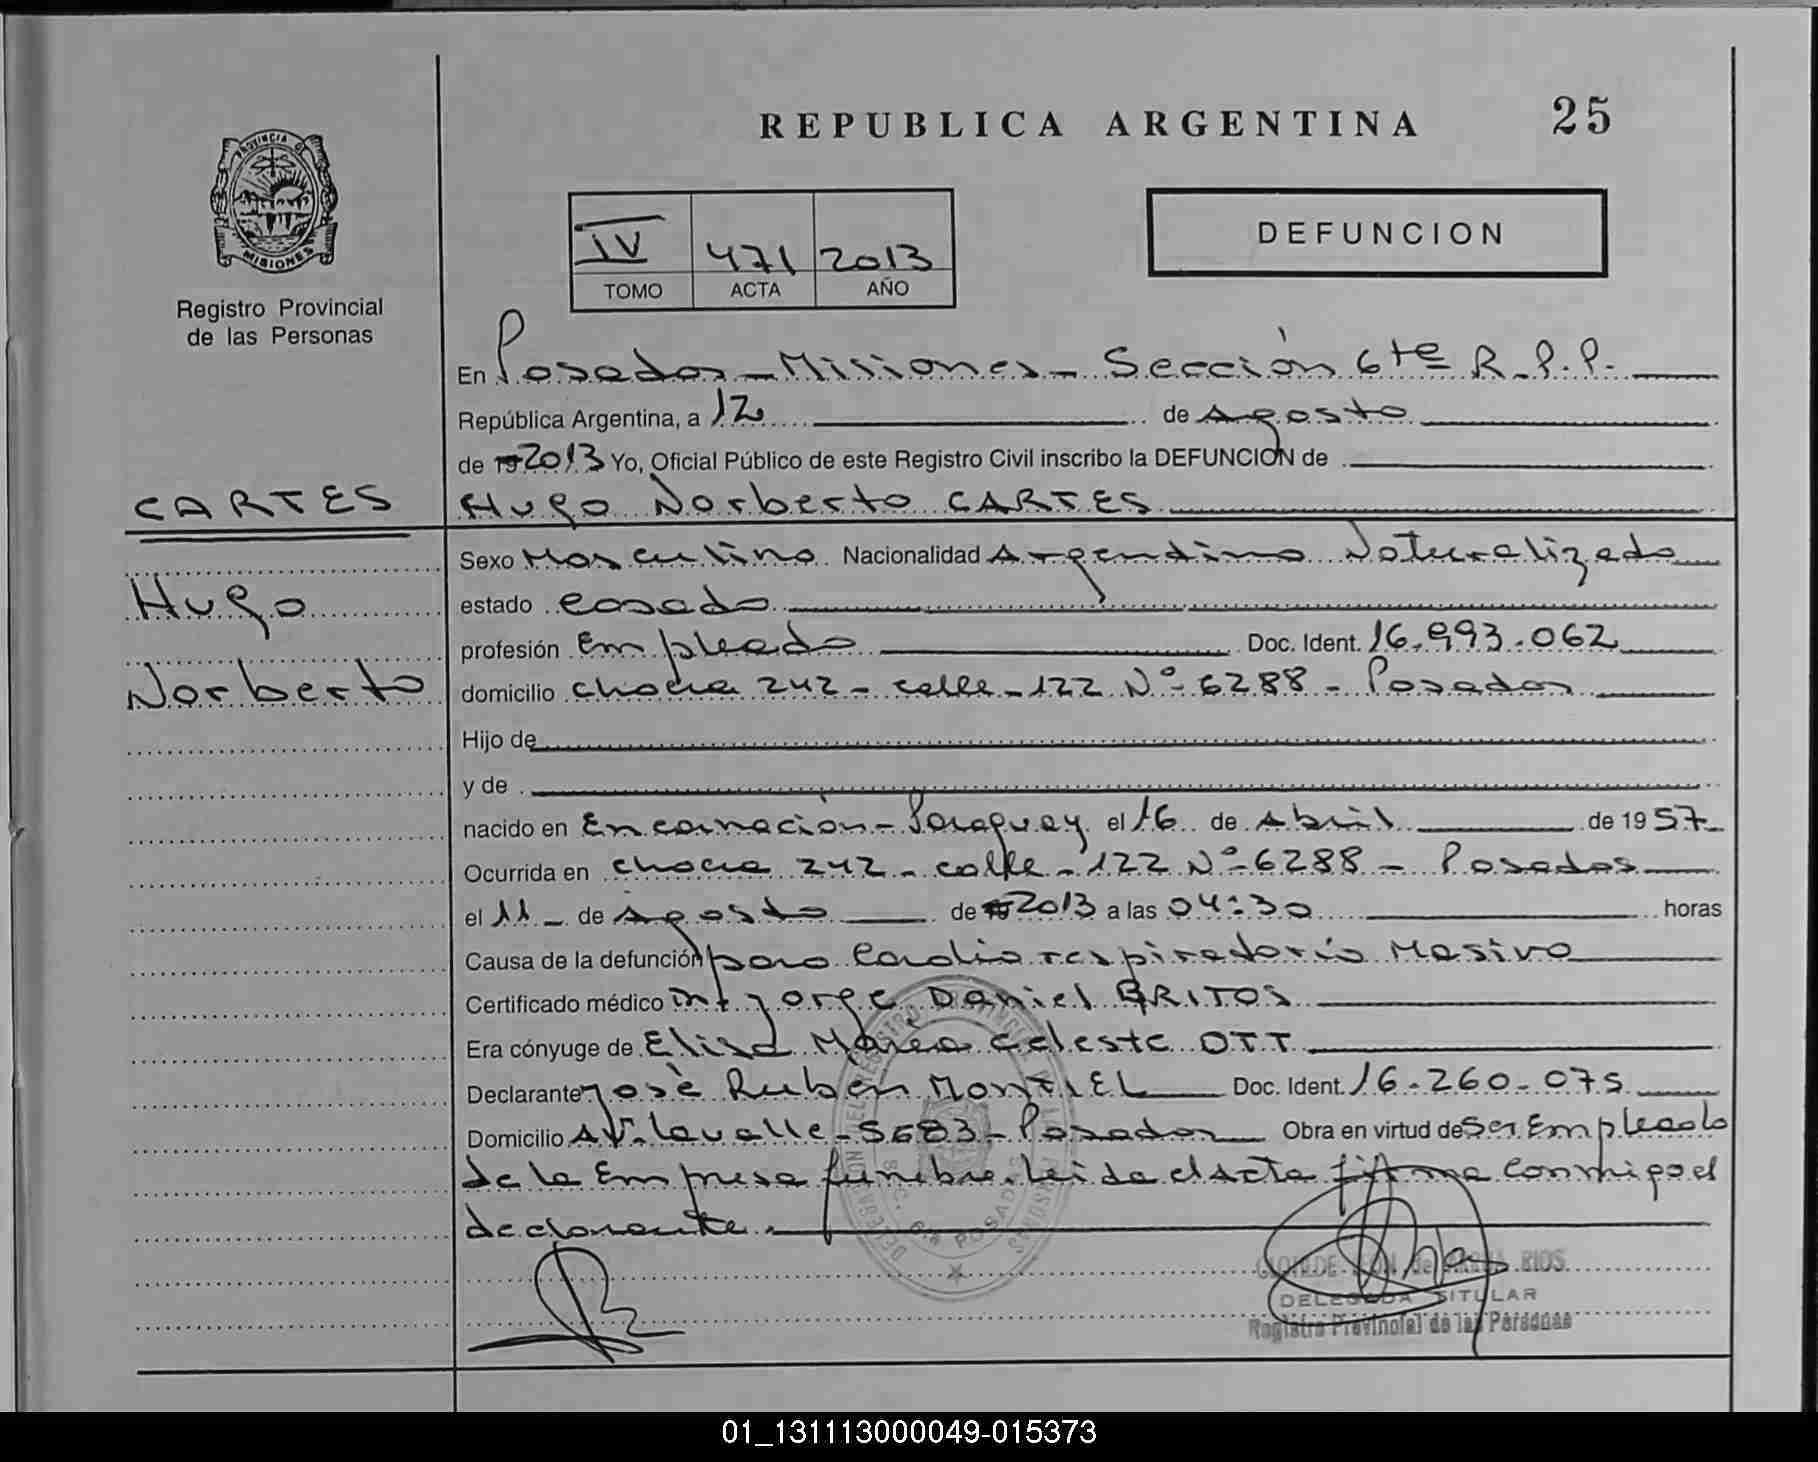 REPUBLICA ARGENTINA 25
PROVINCIA DE
MISIONES
Registro Provincial
de las Personas
IV 471 2013
TOMO ACTA AÑO
DEFUNCION
En Posadas - Misiones - Sección 6ta R.P.P.
República Argentina, a 12 de Agosto
de 19 2013 Yo, Oficial Público de este Registro Civil inscribo la DEFUNCION de
CARTES
Hugo Norberto CARTES
Sexo Masculino Nacionalidad Argentino Naturalizado
Hugo
estado casado
profesión Empleado Doc. Ident. 16.993.062
Norberto
domicilio chacra 242 - calle - 122 Nº 6288 - Posadas
Hijo de
y de
nacido en Encarnación - Paraguay el 16 de Abril de 1957
Ocurrida en chacra 242 - calle - 122 Nº 6288 - Posadas
el 11 de Agosto de 19 2013 a las 04:30 horas
Causa de la defunción paro Cardio respiratorio Masivo
Certificado médico Jorge Daniel BRITOS
Era cónyuge de Elisa María Celeste OTT
Declarante José Ruben MONTIEL Doc. Ident. 16.260.075
Domicilio AV. Lavalle - 5683 - Posadas Obra en virtud de Ser Empleado
de la Empresa fúnebre. Leida el Acta firma Conmigo el
declarante.
DELEGADA TITULAR
Registro Provincial de las Personas
01_131113000049-015373